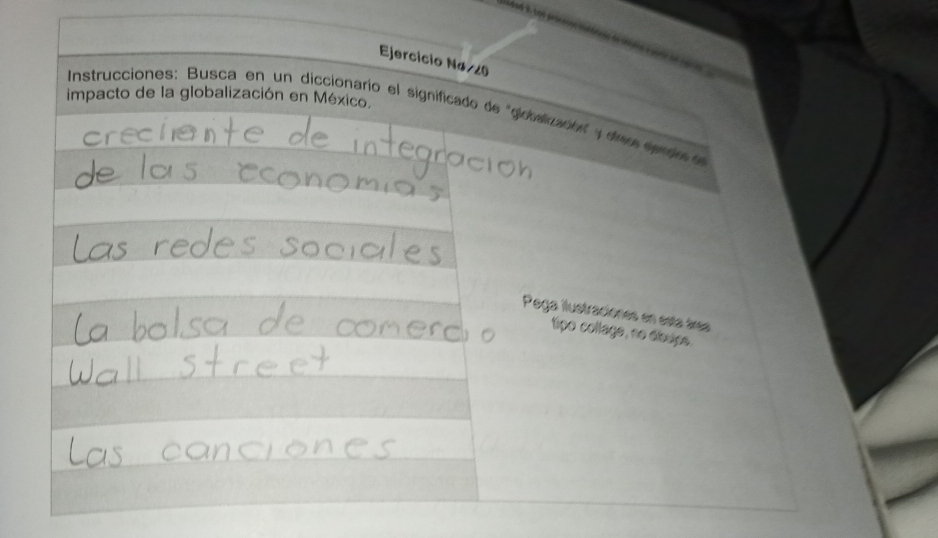 Ejercicio No. 20
Instrucciones: Busca en un diccionario el significado de "globalización" y cinco ejemplos de
impacto de la globalización en México.
creciente de integracion
de las economias
Las redes sociales
La bolsa de comercio
Wall street
Las canciones
Pega ilustraciones en esta área
tipo collage, no dibujos.